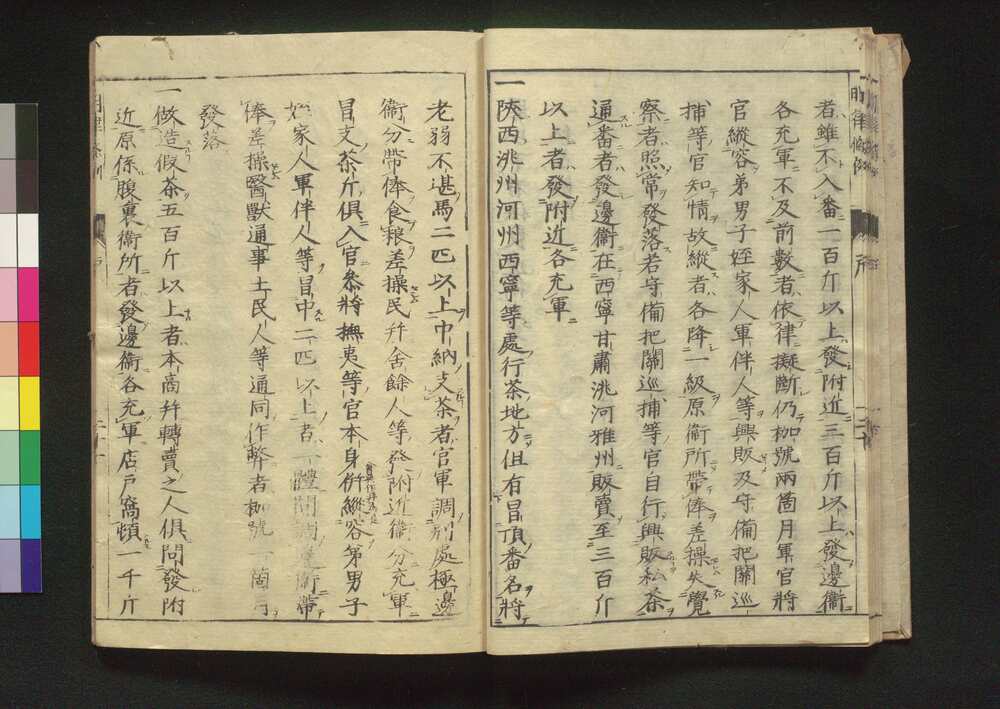 者雖不入番一百斤以上發附近三百斤以上發邊衞
各充軍不及前數者依律擬斷仍枷號兩箇月軍官將
官縱容弟男子姪家人軍伴人等興販及守備把關巡
捕等官知情故縱者各降一級原衞所帶俸差操失覺
察者照常發落若守備把關巡捕等官自行興販私茶
通番者發邊衞在西寧甘肅洮河雅州販賣至三百斤
以上者發附近各充軍
一陝西洮州河州西寧等處行茶地方但有冒頂番名將
老弱不堪馬二匹以上中納支茶者官軍調別處極邊
衞分帶俸食粮差操民幷舍餘人等發附近衞分充軍
冒支茶斤俱入官叅將撫夷等官本身倂縱容弟男子
姪家人軍伴人等冒中二匹以上者一體問調邊衞帶
俸差操醫獸通事土民人等通同作弊者枷號一箇月
發落
一做造假茶五百斤以上者本商幷轉賣之人俱問發附
近原係腹裏衞所者發邊衞各充軍店戶窩頓一千斤